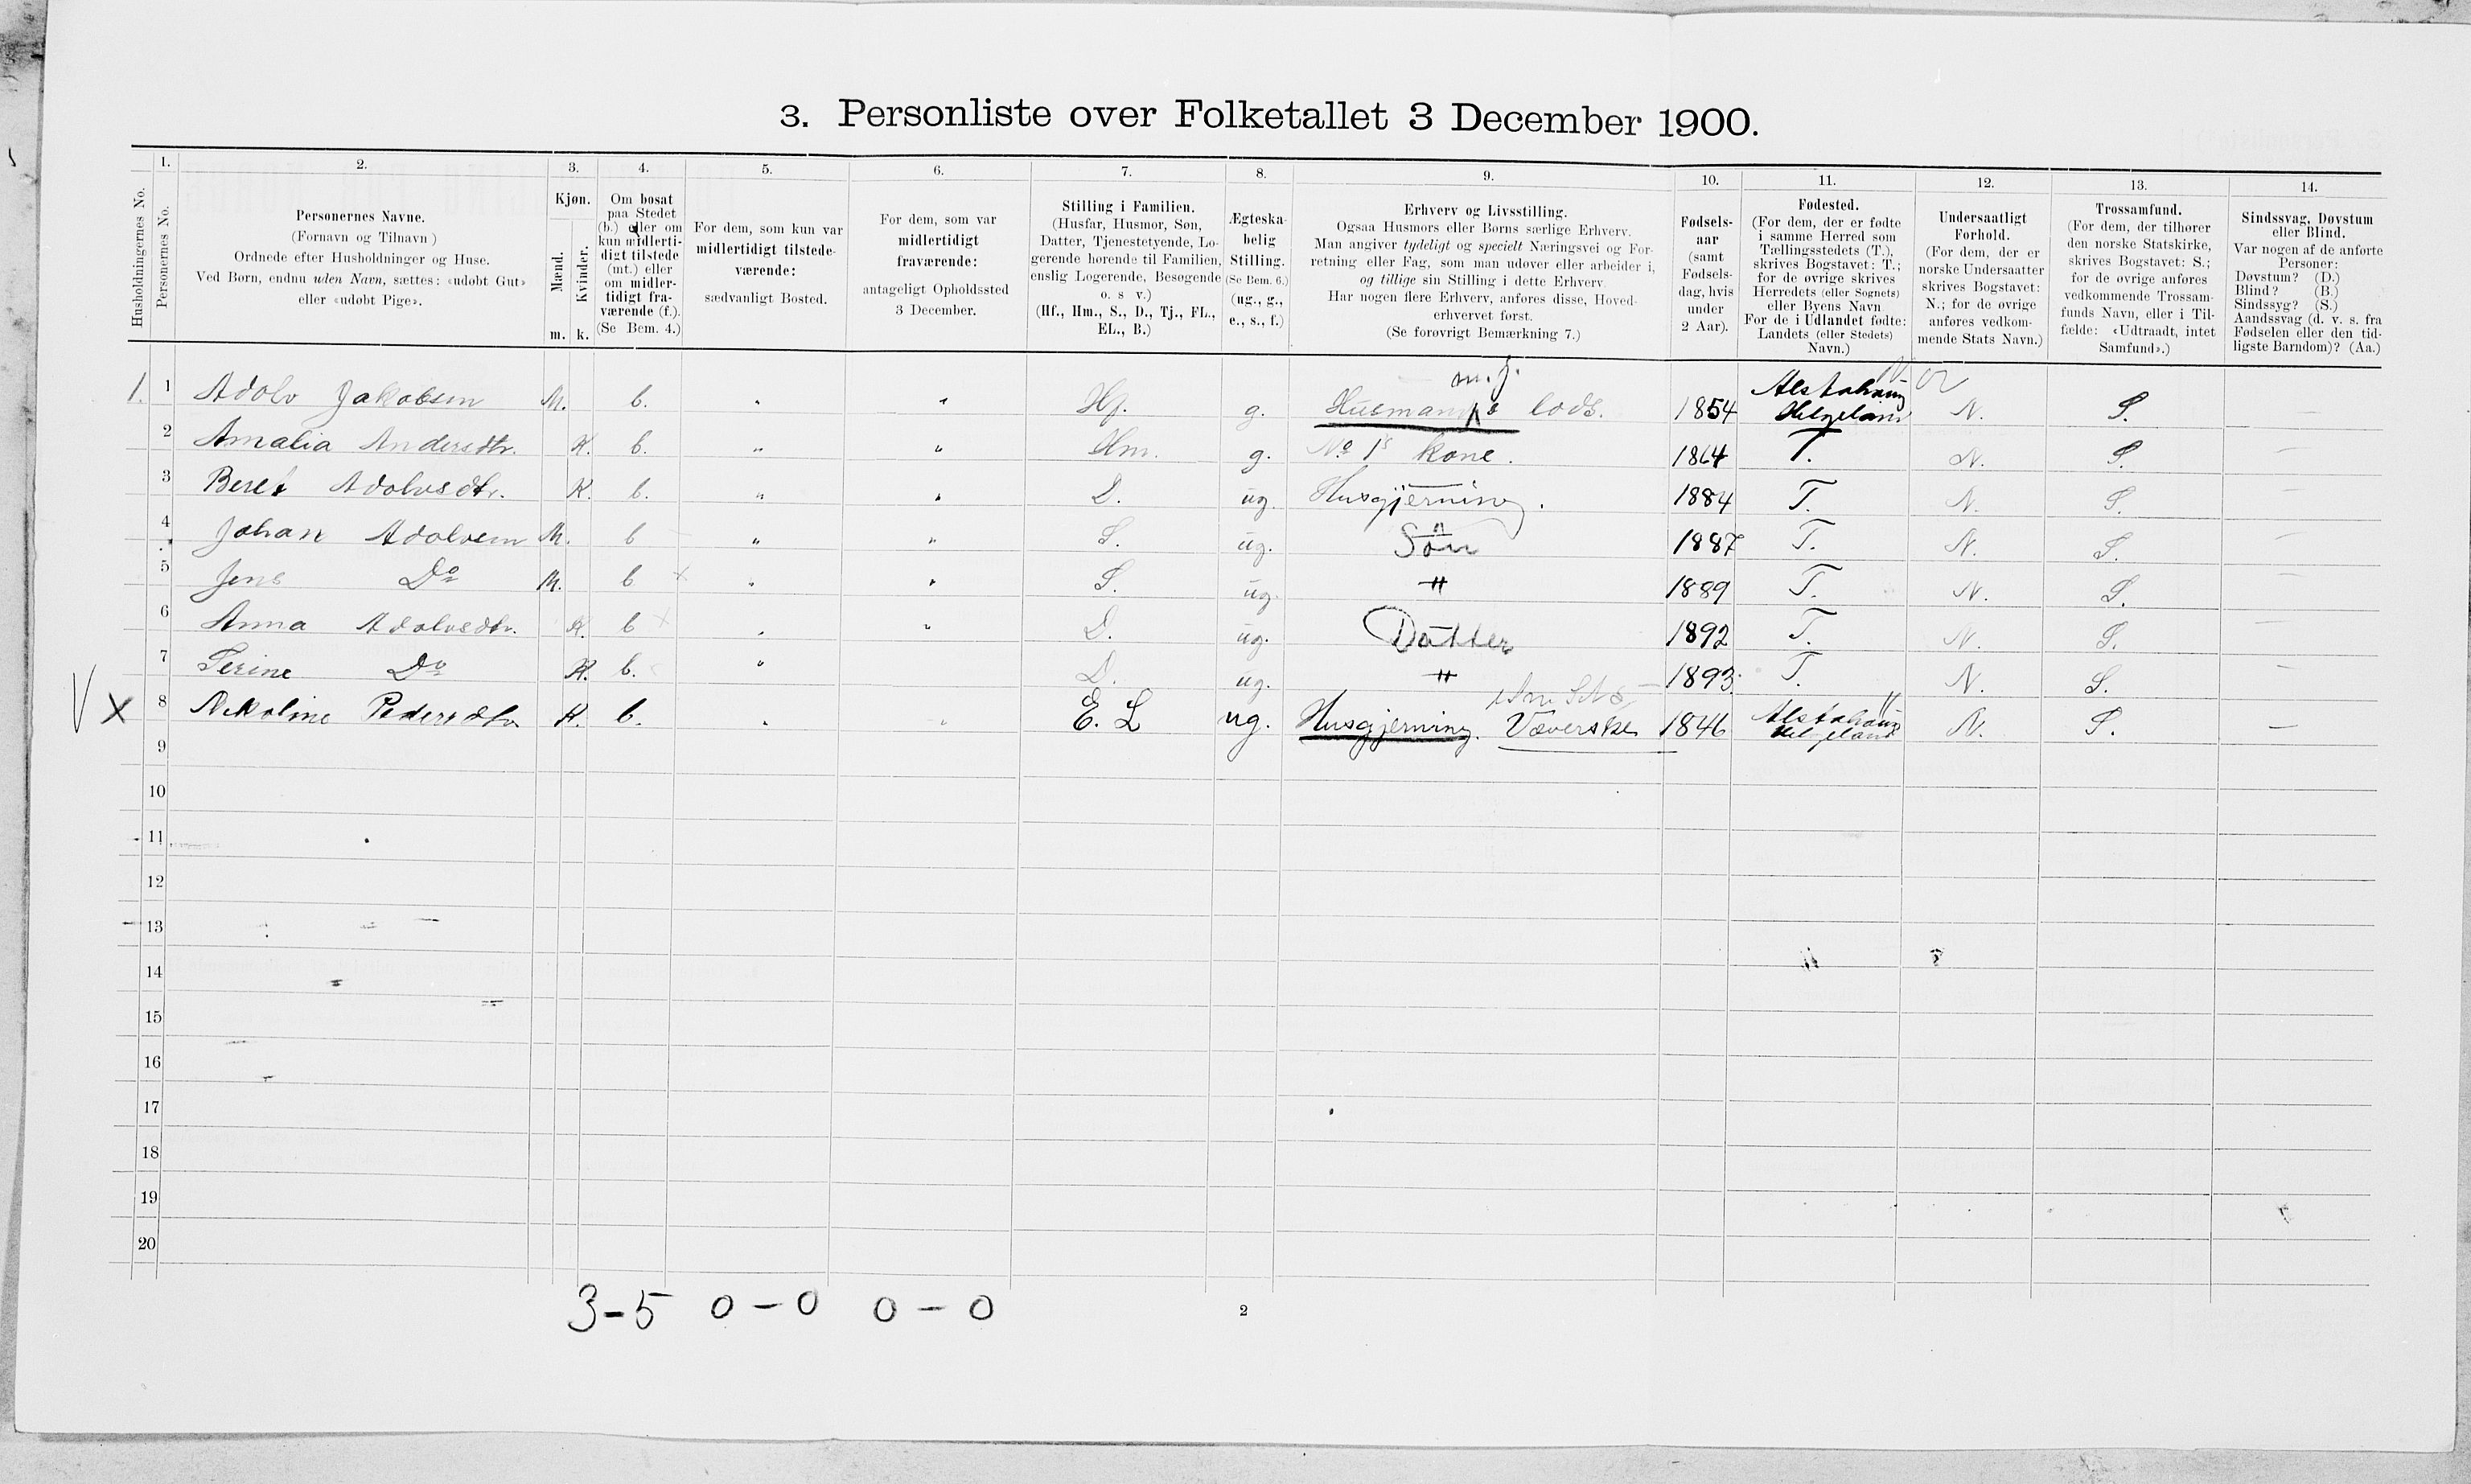 3. Personliste over Folketallet 3 December 1900.
1. 2. 3. 4. 5. 6. 7. 8. 9. 10. 11. 12. 13. 14.
Husholdningernes No.
Personernes No.
Personernes Navne.
(Fornavn og Tilnavn)
Ordnede efter Husholdninger og Huse.
Ved Børn, endnu uden Navn, sættes: «udøbt Gut»
eller «udøbt Pige».
Kjøn.
Mænd.
Kvinder.
m. k.
Om bosat
paa Stedet
(b.) eller om
kun midlerti-
digt tilstede
(mt.) eller
om midler-
tidigt fra-
værende (f.).
(Se Bem. 4.)
For dem, som kun var
midlertidigt tilstede-
værende:
sædvanligt Bosted.
For dem, som var
midlertidigt
fraværende:
antageligt Opholdssted
3 December.
Stilling i Familien.
(Husfar, Husmor, Søn,
Datter, Tjenestetyende, Lo-
gerende hørende til Familien,
enslig Logerende, Besøgende
o. s. v.)
(Hf., Hm., S., D., Tj., FL.,
EL., B.)
Ægteska-
belig
Stilling.
(Se Bem. 6.)
(ug., g.,
e., s., f.)
Erhverv og Livsstilling.
Ogsaa Husmors eller Børns særlige Erhverv.
Man angiver tydeligt og specielt Næringsvei og For-
retning eller Fag, som man udøver eller arbeider i,
og tillige sin Stilling i dette Erhverv.
Har nogen flere Erhverv, anføres disse, Hoved-
erhvervet først.
(Se forøvrigt Bemærkning 7.)
Fødsels-
aar
(samt
Fødsels-
dag, hvis
under
2 Aar).
Fødested.
(For dem, der er fødte
i samme Herred som
Tællingsstedets (T.),
skrives Bogstavet: T.;
for de øvrige skrives
Herredets (eller Sognets)
eller Byens Navn.
For de i Udlandet fødte:
Landets (eller Stedets)
Navn.)
Undersaatligt
Forhold.
(For dem, der er
norske Undersaatter
skrives Bogstavet:
N.; for de øvrige
anføres vedkom-
mende Stats Navn.)
Trossamfund.
(For dem, der tilhører
den norske Statskirke,
skrives Bogstavet: S.;
for de øvrige anføres
vedkommende Trossam-
funds Navn, eller i Til-
fælde: «Udtraadt, intet
Samfund».)
Sindssvag, Døvstum
eller Blind.
Var nogen af de anførte
Personer:
Døvstum? (D.)
Blind? (B.)
Sindssyg? (S.)
Aandssvag (d. v. s. fra
Fødselen eller den tid-
ligste Barndom)? (Aa.)
m. j.
1. 1 Adolv Jakobsen M. b. " " Hf. g. Husmand & lods. 1854 Alstahaug Helgeland N. S. —
2 Amalia Andersdtr. K. b. " " Hm. g. No 1s kone. 1864 T. N. S. —
3 Beret Adolvsdtr. K. b. " " D. ug. Husgjerning. 1884 T. N. S. —
4 Johan Adolvsen M. b " " S. ug. Søn 1887 T. N. S. —
5 Jens Do M. b x " " S. ug. " 1889 T. N. S. —
6 Anna Adolvsdtr. K. b x " " D. ug. Datter 1892 T. N. S. —
7 Serine Do K. b. " D. ug. " 1893. T. N. S. —
V x 8 Nikoline Pedersdtr K. b. " " E. L ug. Husgjerning. Væverske 1846 Alstahaug Helgeland N. S. —
9
10
11
12
13
14
15
16
17
18
19
20
3-5 0-0 0-0
2